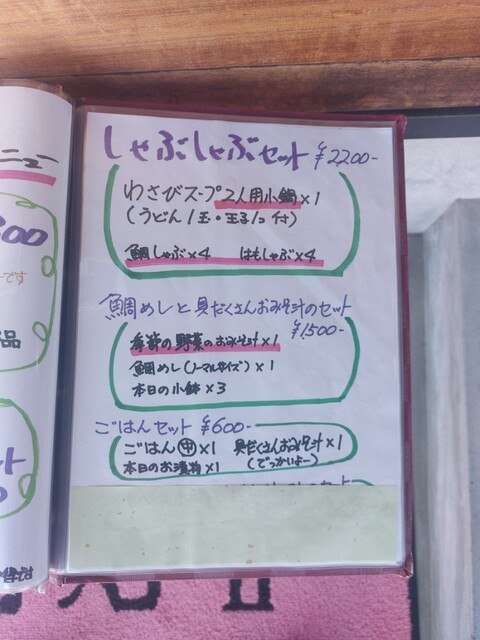 しゃぶしゃぶセット ¥2200-
わさびスープ2人用小鍋×1
(うどん1玉・玉子1コ付)
鯛しゃぶ×4 はもしゃぶ×4
鯛めしと具だくさんおみそ汁のセット
¥1,500-
季節の野菜のおみそ汁×1
鯛めし(ノーマルサイズ)×1
本日の小鉢×3
ごはんセット ¥600-
ごはん㊥×1 具だくさんおみそ汁×1
本日のお漬物×1 (でっかいよー)
ニュー
300
です
品
ット